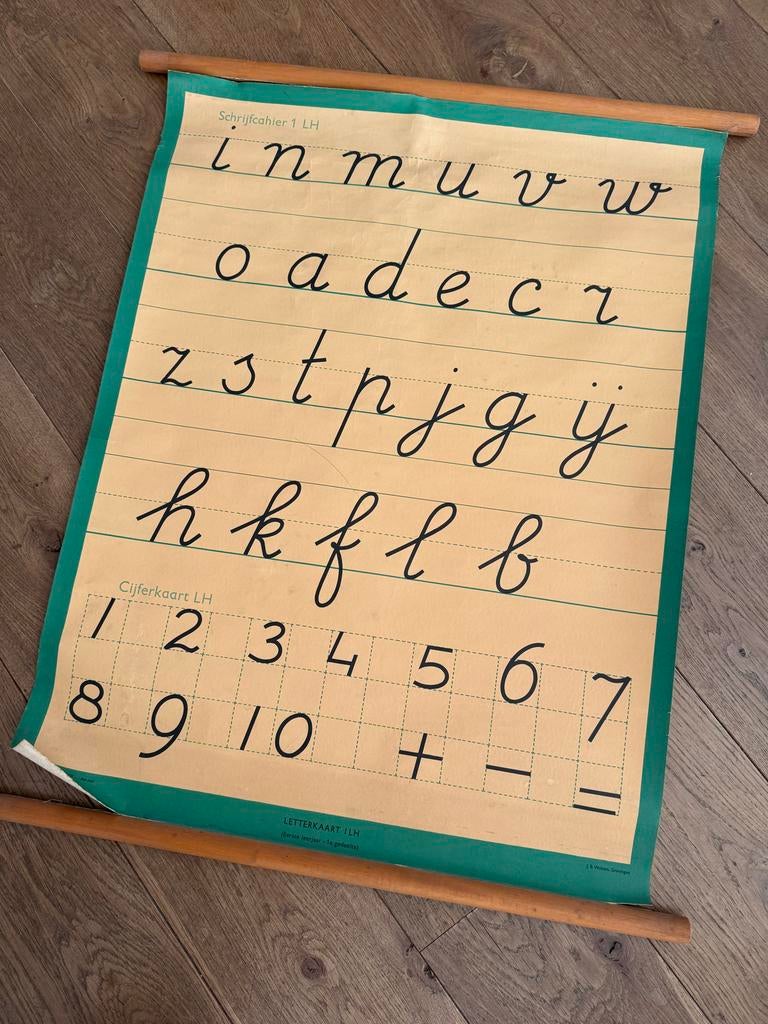 Schrijfcahier 1 LH
i n m u v w
o a d e c r
z s t p j g ij
h k f l b
Cijferkaart LH
1 2 3 4 5 6 7
8 9 10 + - =
LETTERKAART 1 LH
(Eerste leerjaar - 1e gedeelte)
J. B. Wolters, Groningen